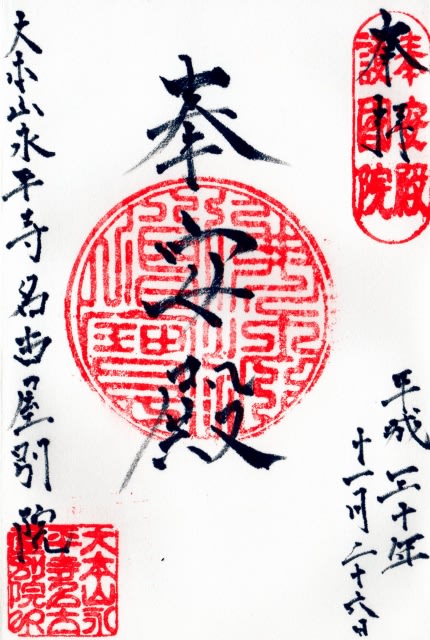 奉拝
奉安殿
護国院
平成三十年
十一月二十六日
奉安殿
大本山永平寺名古屋別院
大本山永
平寺名古
屋別院印